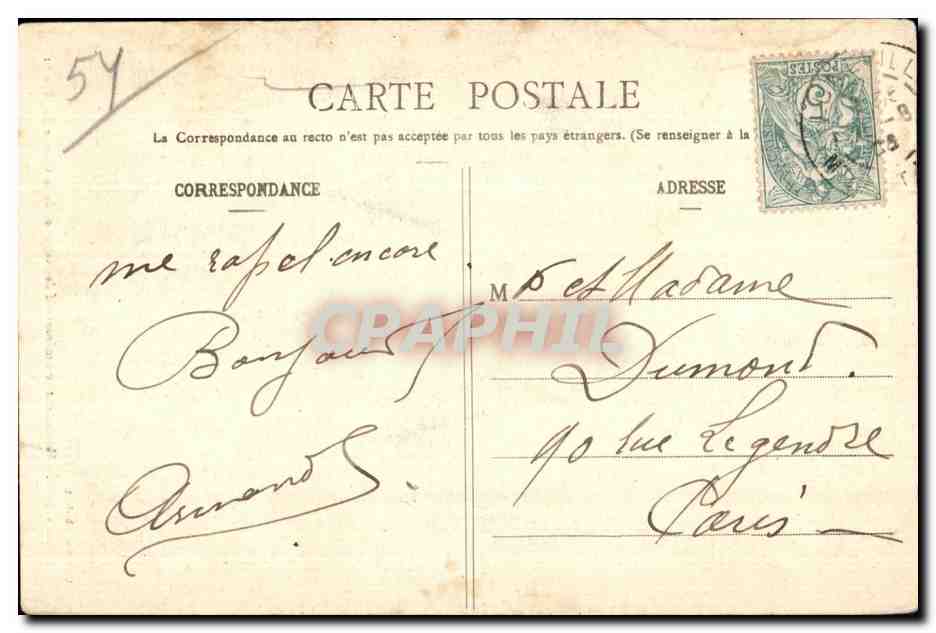 54
CARTE POSTALE
La Correspondance au recto n'est pas acceptée par tous les pays étrangers. (Se renseigner à la
CORRESPONDANCE
ADRESSE
POSTES
me rapel encore
Bonjour
Armand
M r et Madame
Dumont.
90 rue Legendre
Paris
CPAPHIL